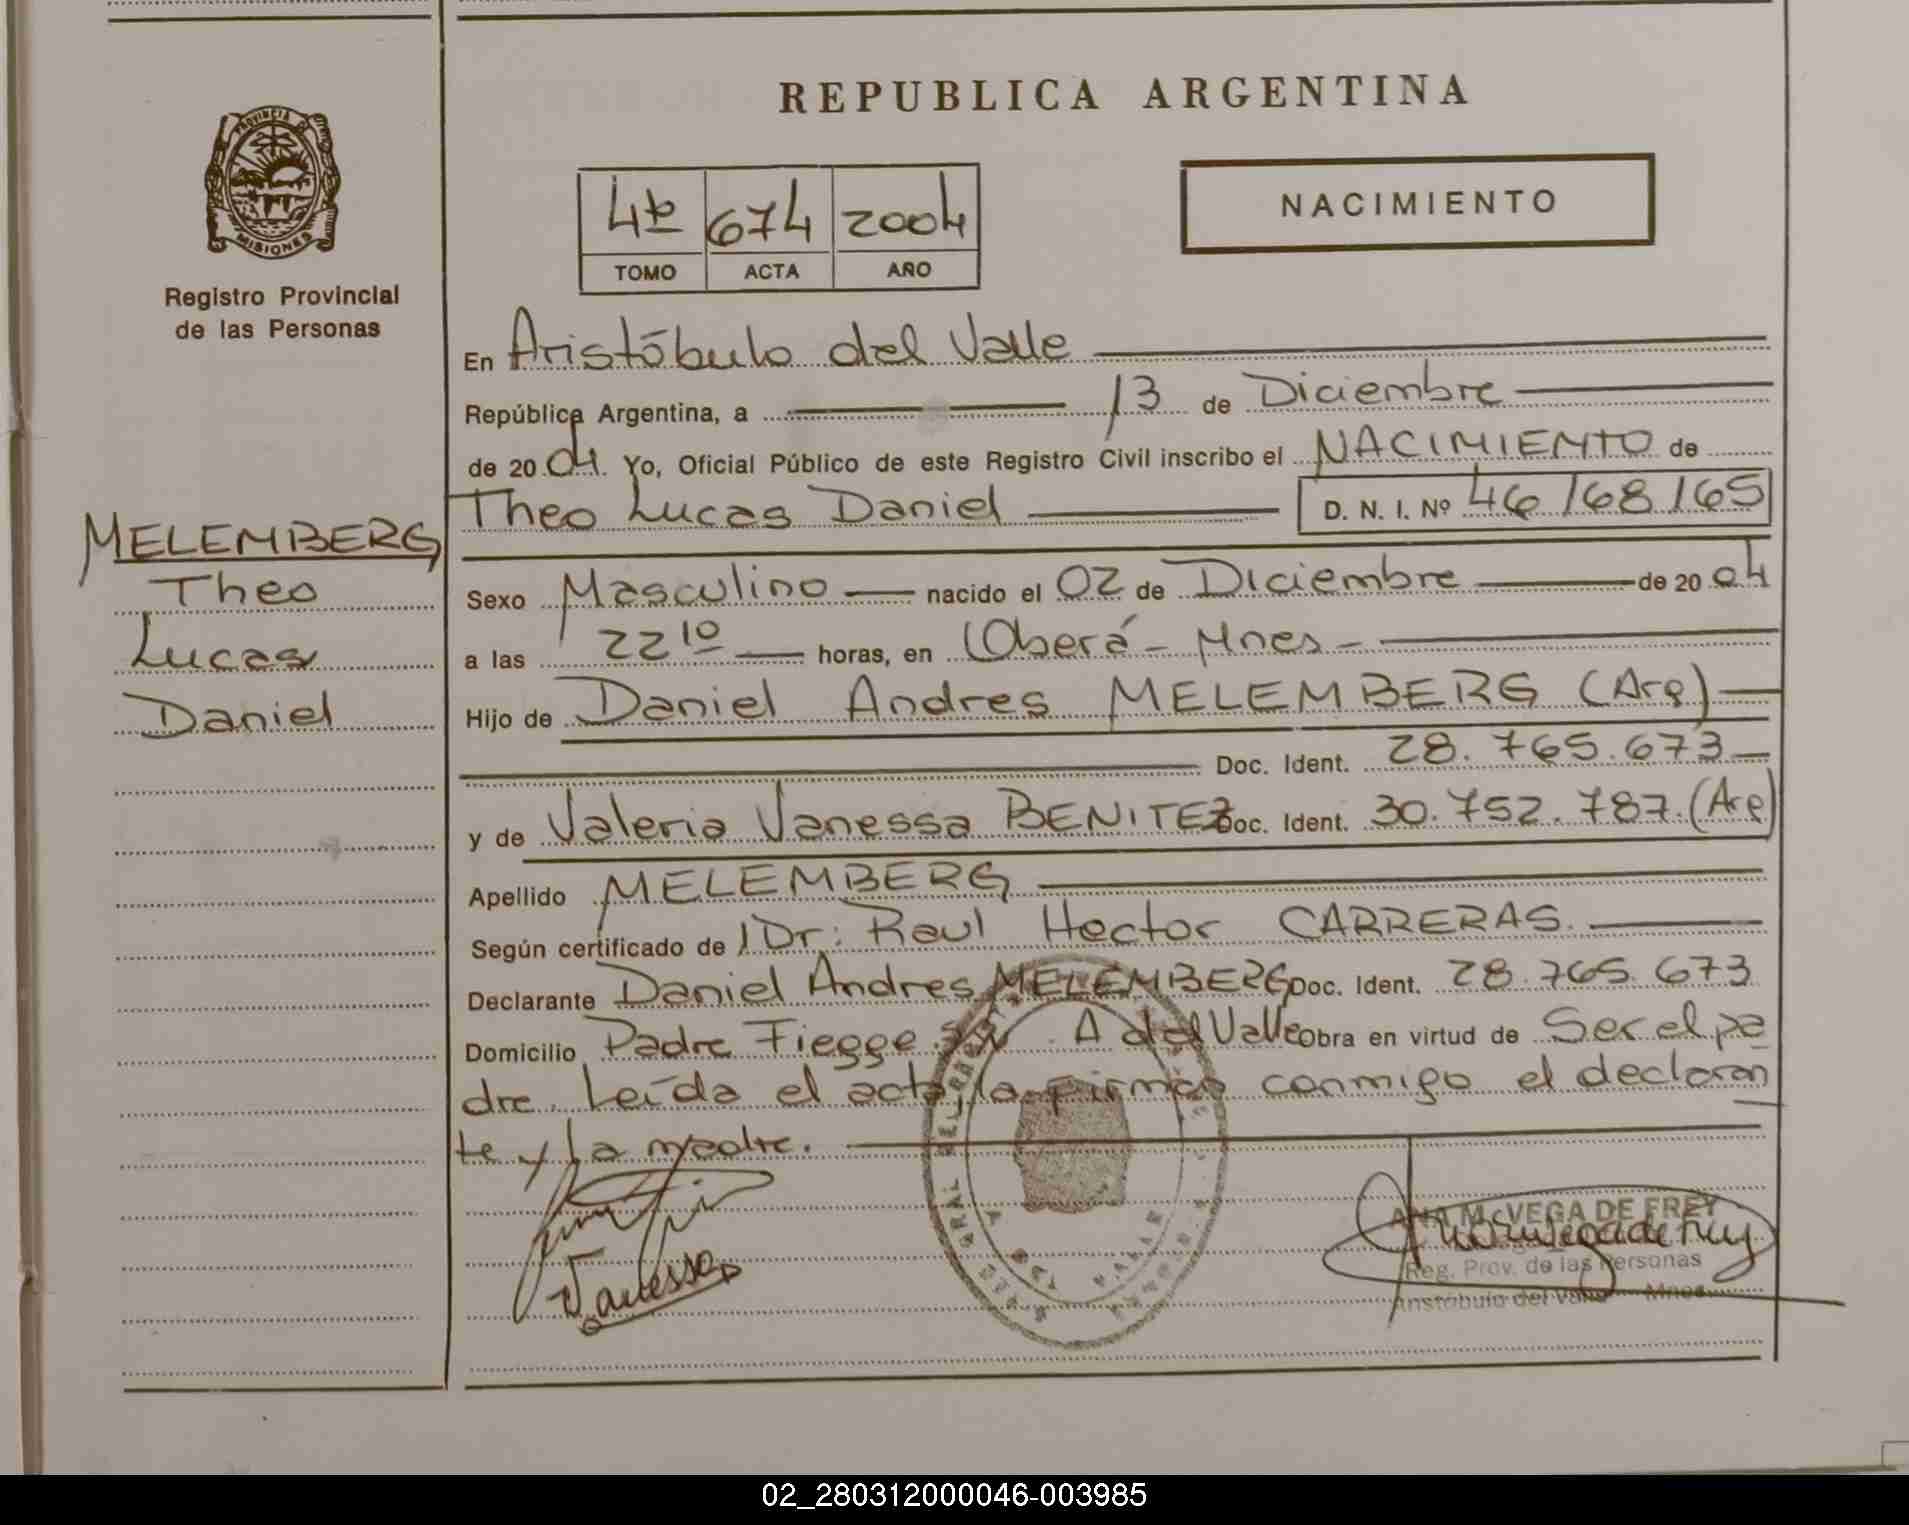 REPUBLICA ARGENTINA
PROVINCIA DE
MISIONES
Registro Provincial
de las Personas
4to 674 2004
TOMO ACTA AÑO
NACIMIENTO
En Aristóbulo del Valle
República Argentina, a 13 de Diciembre
de 2004. Yo, Oficial Público de este Registro Civil inscribo el NACIMIENTO de
Theo Lucas Daniel D. N. I. Nº 46168165
MELEMBERG
Theo
Lucas
Daniel
Sexo Masculino nacido el 02 de Diciembre de 2004
a las 22 10 horas, en Oberá - Mnes -
Hijo de Daniel Andres MELEMBERG (Arg)
Doc. Ident. 28.765.673
y de Valeria Vanessa BENITEZ Doc. Ident. 30.752.787.(Arg)
Apellido MELEMBERG
Según certificado de Dr: Raul Hector CARRERAS.
Declarante Daniel Andres MELEMBERG Doc. Ident. 28.765.673
Domicilio Padre Fiegge A del Valle Obra en virtud de Ser el pa
dre. Leída el acta, la firman conmigo el declaran
te y La madre.
Vanessa
ANA M. VEGA DE FREY
Reg. Prov. de las Personas
Aristóbulo del Valle Mnes.
02_280312000046-003985